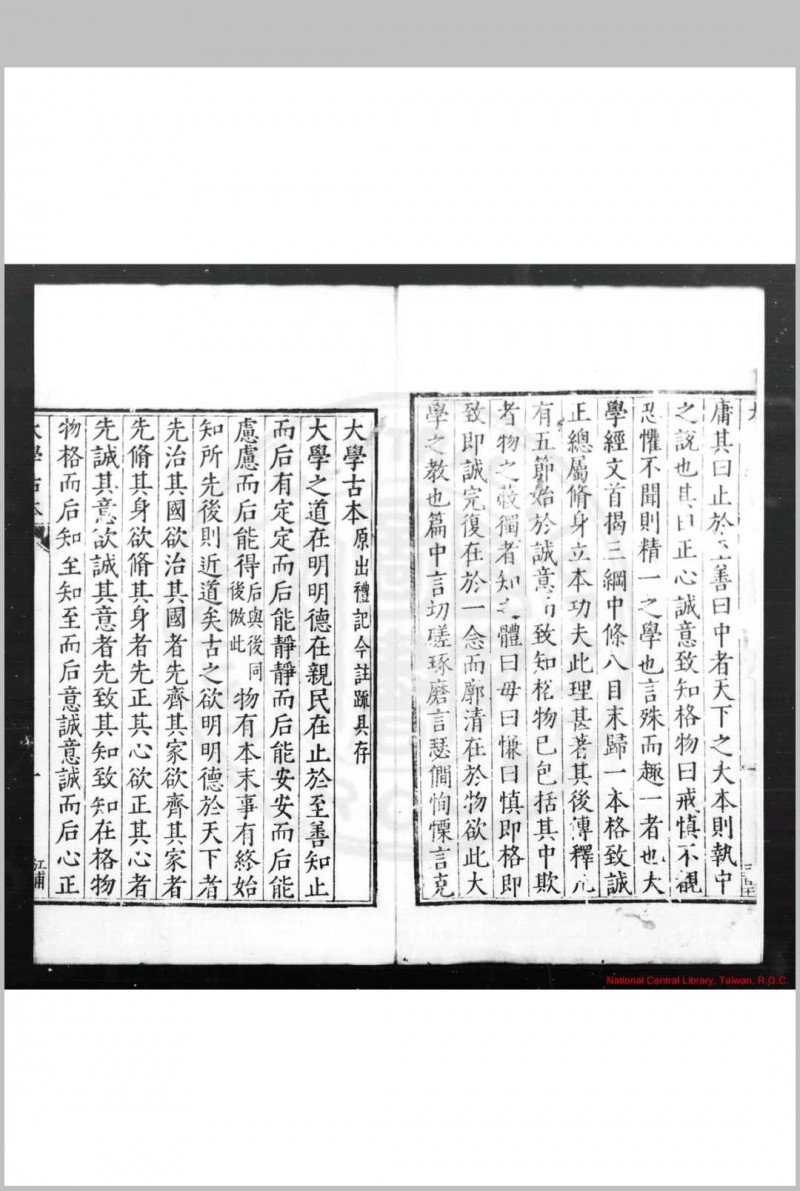 庸其曰止於至善曰中者天下之大本則執中
之說也其曰正心誠意致知格物曰戒慎不覩
恐懼不聞則精一之學也言殊而趣一者也大
學經文首揭三綱中條八目末歸一本格致誠
正總屬脩身立本功夫此理甚著其後傳釋凡
有五節始於誠意而致知格物已包括其中欺
者物之蔽獨者知之體曰毋曰慊曰慎即格即
致即誠完復在於一念而廓清在於物欲此大
學之教也篇中言切磋琢磨言瑟僩恂慄言克
大學古本原出禮記今註䟽具存
大學之道在明明德在親民在止於至善知止
而后有定定而后能靜靜而后能安安而后能
慮慮而后能得后與後同後倣此物有本末事有終始
知所先後則近道矣古之欲明明德於天下者
先治其國欲治其國者先齊其家欲齊其家者
先脩其身欲脩其身者先正其心欲正其心者
先誠其意欲誠其意者先致其知致知在格物
物格而后知至知至而后意誠意誠而后心正
大學古本
一
江浦
National Central Library, Taiwan, R.O.C.